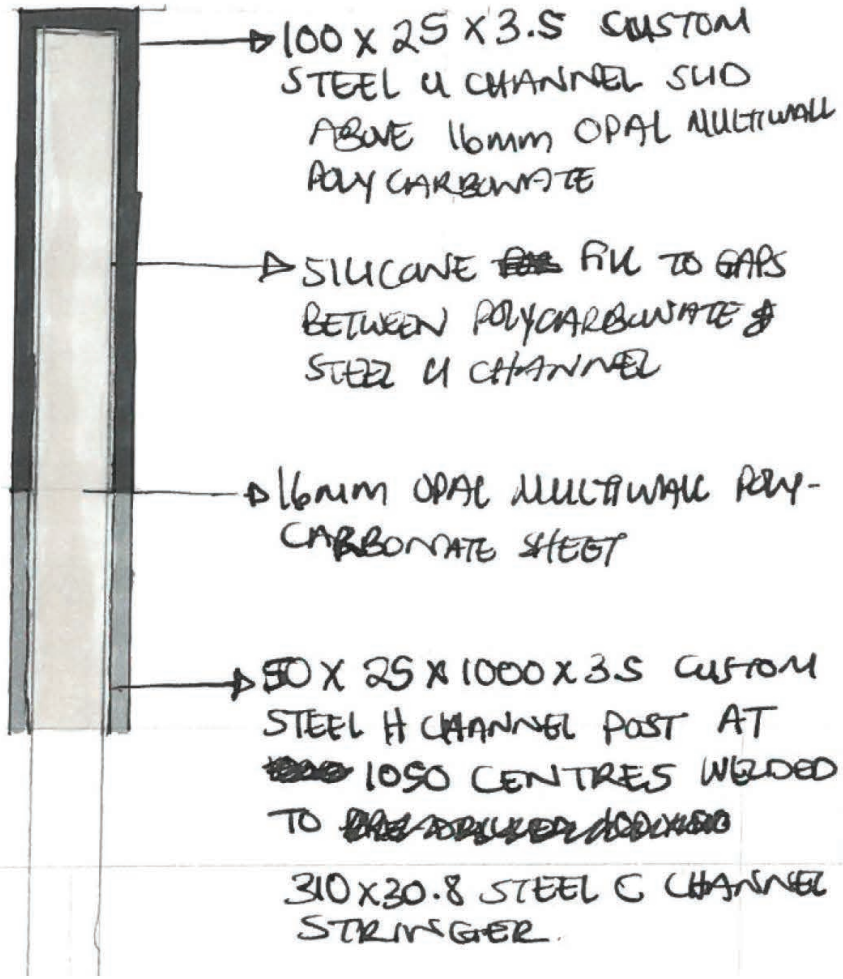 100 x 25 x 3.5 CUSTOM
STEEL U CHANNEL SLID
ABOVE 16mm OPAL MULTIWALL
POLYCARBONATE
SILICONE FILL TO GAPS
BETWEEN POLYCARBONATE &
STEEL U CHANNEL
16mm OPAL MULTIWALL POLY-
CARBONATE SHEET
50 X 25 X 1000 X 3.5 CUSTOM
STEEL H CHANNEL POST AT
1050 CENTRES WELDED
TO
310x30.8 STEEL C CHANNEL
STRINGER.